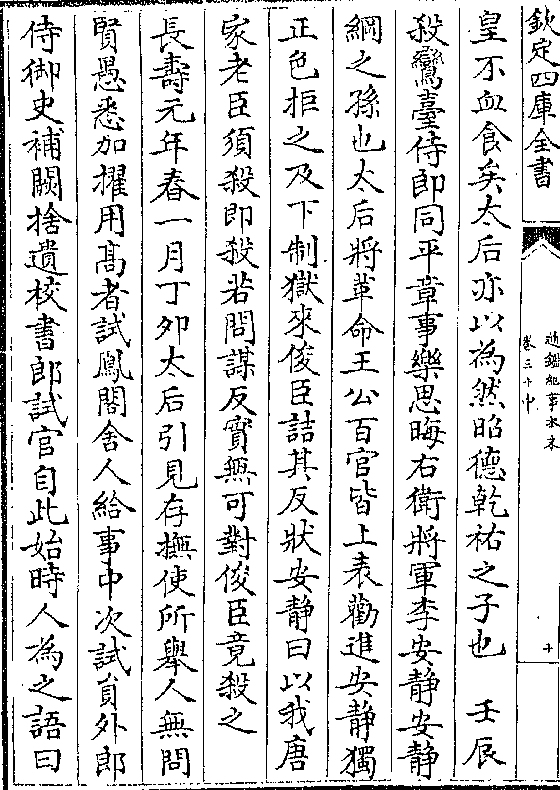 欽定四庫全書
通鑑紀事本末
卷三十中
十
皇不血食矣太后亦以為然昭德乾祐之子也　壬辰
殺鸞臺侍郎同平章事樂思晦右衛將軍李安靜安靜
綱之孫也太后將革命王公百官皆上表勸進安靜獨
正色拒之及下制獄來俊臣詰其反狀安靜曰以我唐
家老臣須殺即殺若問謀反實無可對俊臣竟殺之
長壽元年春一月丁夘太后引見存撫使所舉人無問
賢愚悉加擢用髙者試鳳閣舍人給事中次試員外郎
侍御史補闕拾遺校書郎試官自此始時人為之語曰